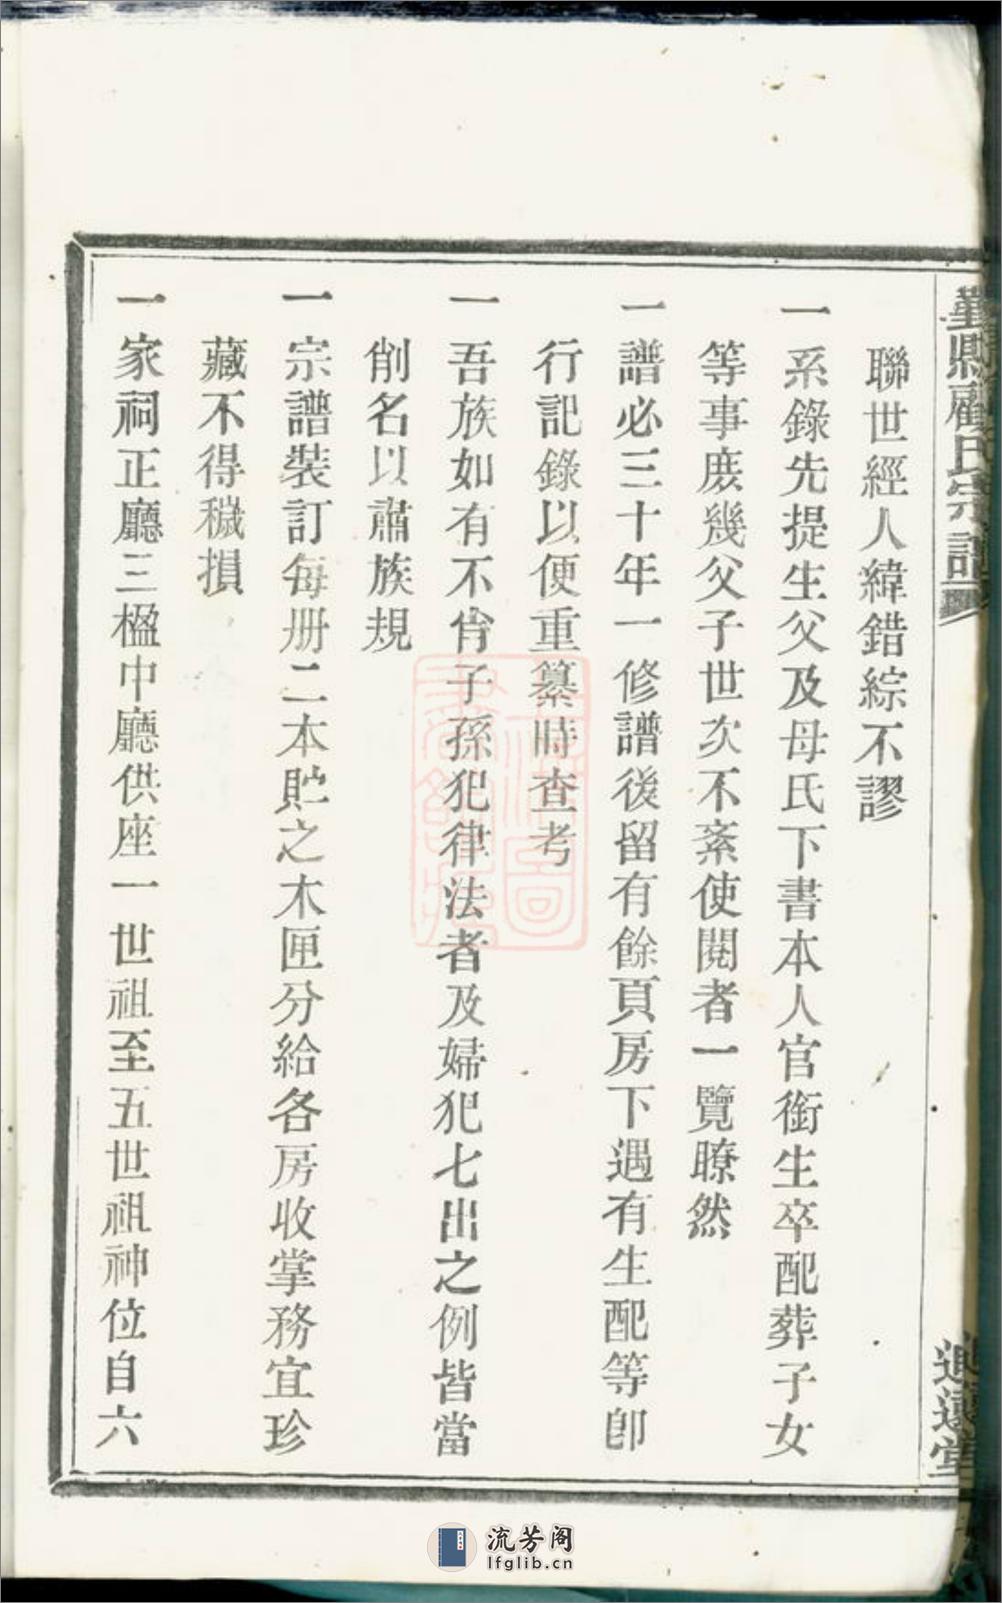 縣顧氏宗譜
追遠堂
聯世經人緯錯綜不謬
一系錄先提生父及母氏下書本人官銜生卒配葬子女
等事庶幾父子世次不紊使閱者一覽瞭然
一譜必三十年一修譜後留有餘頁房下遇有生配等卽
行記錄以便重纂時查考
一吾族如有不肖子孫犯律法者及婦犯七出之例皆當
削名以肅族規
一宗譜裝訂每册二本貯之木匣分給各房收掌務宜珍
藏不得穢損
一家祠正廳三楹中廳供座一世祖至五世祖神位自六
流芳阁
lfglib.cn